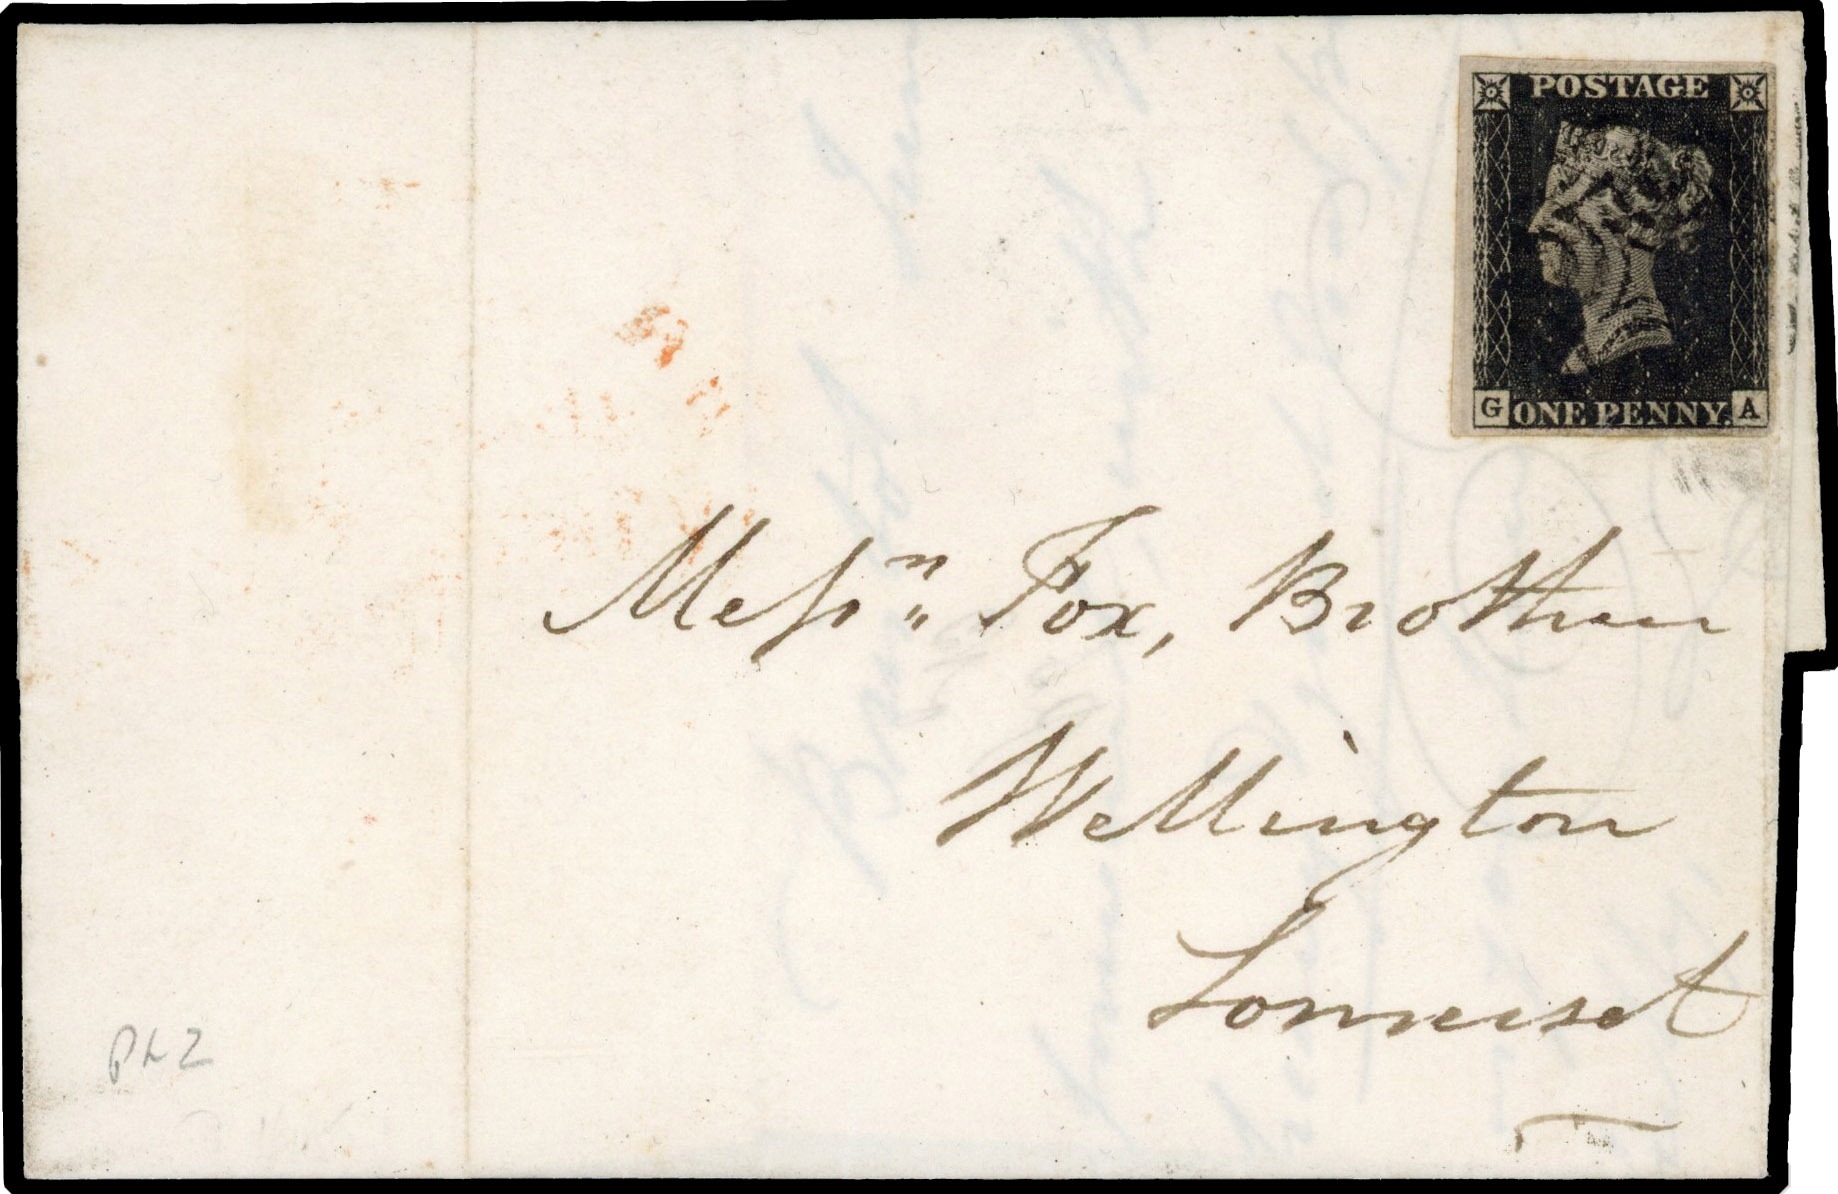 POSTAGE
G ONE PENNY. A
Messrs. Fox, Brothers
Wellington
Somerset
PL 2